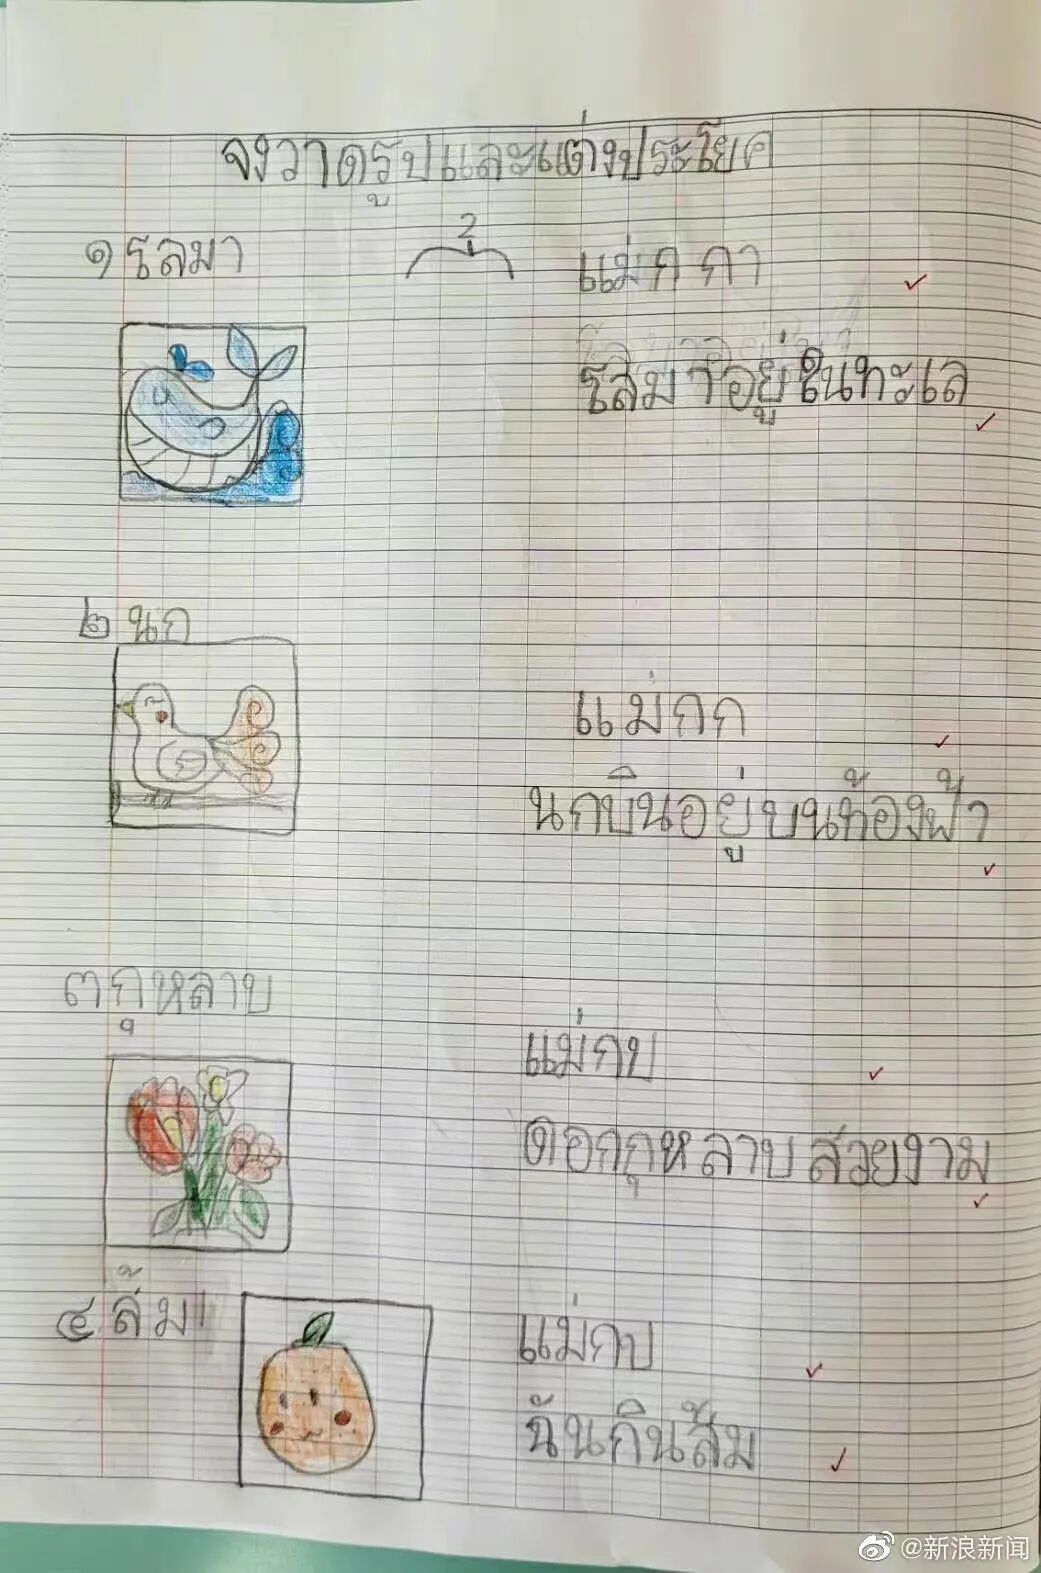 จงวาดรูปและแต่งประโยค
๑ โลมา
2
แม่ ก กา
โลมาอยู่ในทะเล
๒ นก
แม่กก
นกบินอยู่บนท้องฟ้า
๓ กุหลาบ
แม่กบ
ดอกกุหลาบสวยงาม
๔ ส้ม
แม่กบ
ฉันกินส้ม
@新浪新闻